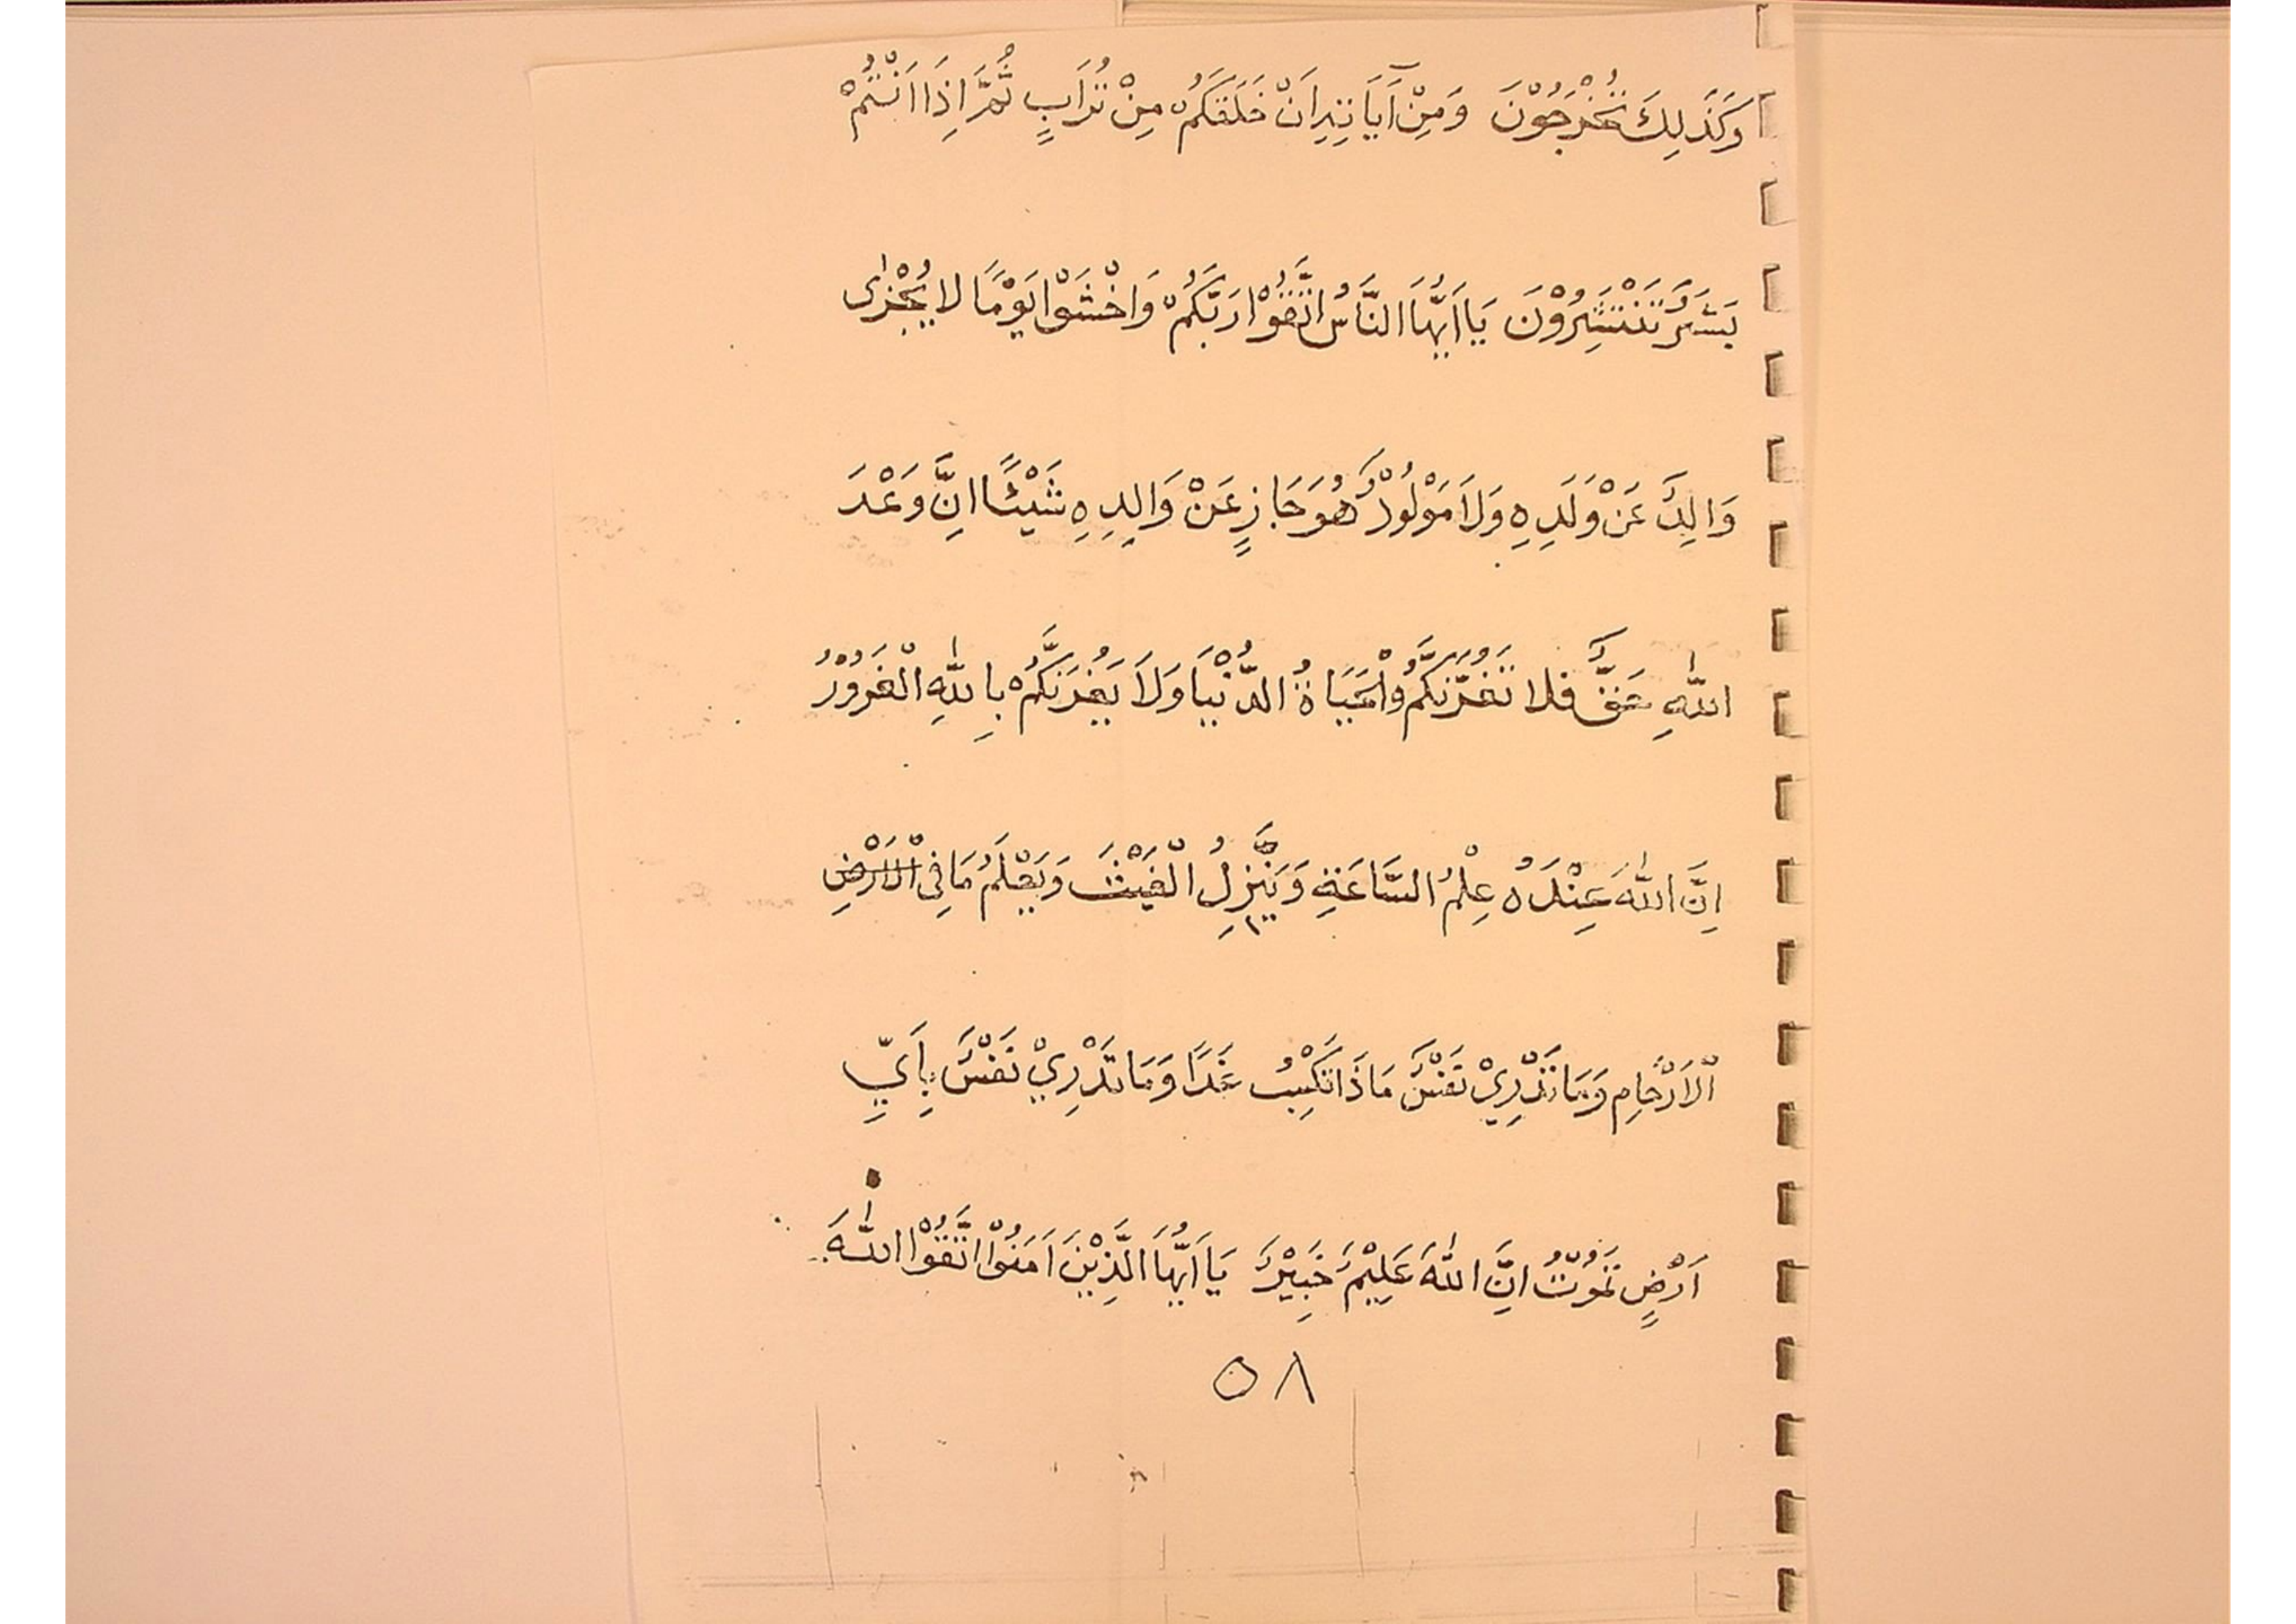 وَكَذَلِكَ تُخْرَجُوْنَ وَمِنْ آَيَاتِهِ اَنْ خَلَقَكُمْ مِنْ تُرَابٍ ثُمَّ اِذَا اَنْتُمْ
بَشَرٌ تَنْتَشِرُوْنَ يَا اَيُّهَا النَّاسُ اتَّقُوْا رَبَّكُمْ وَاخْشَوْا يَوْمًا لا يُجْزٰى
وَالِدٌ عَنْ وَلَدِهِ وَلاَ مَوْلُوْدٌ هُوَ جَازٍ عَنْ وَالِدِهِ شَيْئًا اِنَّ وَعْدَ
اللّٰهِ حَقٌّ فلا تَغُرَّنَّكُمُ الْحَيَاةُ الدُّنْيَا وَلاَ يَغُرَنَّكُمْ بِاللّٰهِ الْغَرُوْرُ
اِنَّ اللّٰهَ عِنْدَهُ عِلْمُ السَّاعَةِ وَيُنَزِّلُ الْغَيْثَ وَيَعْلَمُ مَا فِى الْاَرْضِ
الْاَرْحَامِ وَمَا تَدْرِيْ نَفْسٌ مَاذَا تَكْسِبُ غَدًا وَمَا تَدْرِيْ نَفْسٌ بِاَيِّ
اَرْضٍ تَمُوْتُ اِنَّ اللّٰهَ عَلِيْمٌ خَبِيْرٌ يَا اَيُّهَا الَّذِيْنَ اَمَنُوْا اتَّقُوْا اللّٰهَ
٥٨